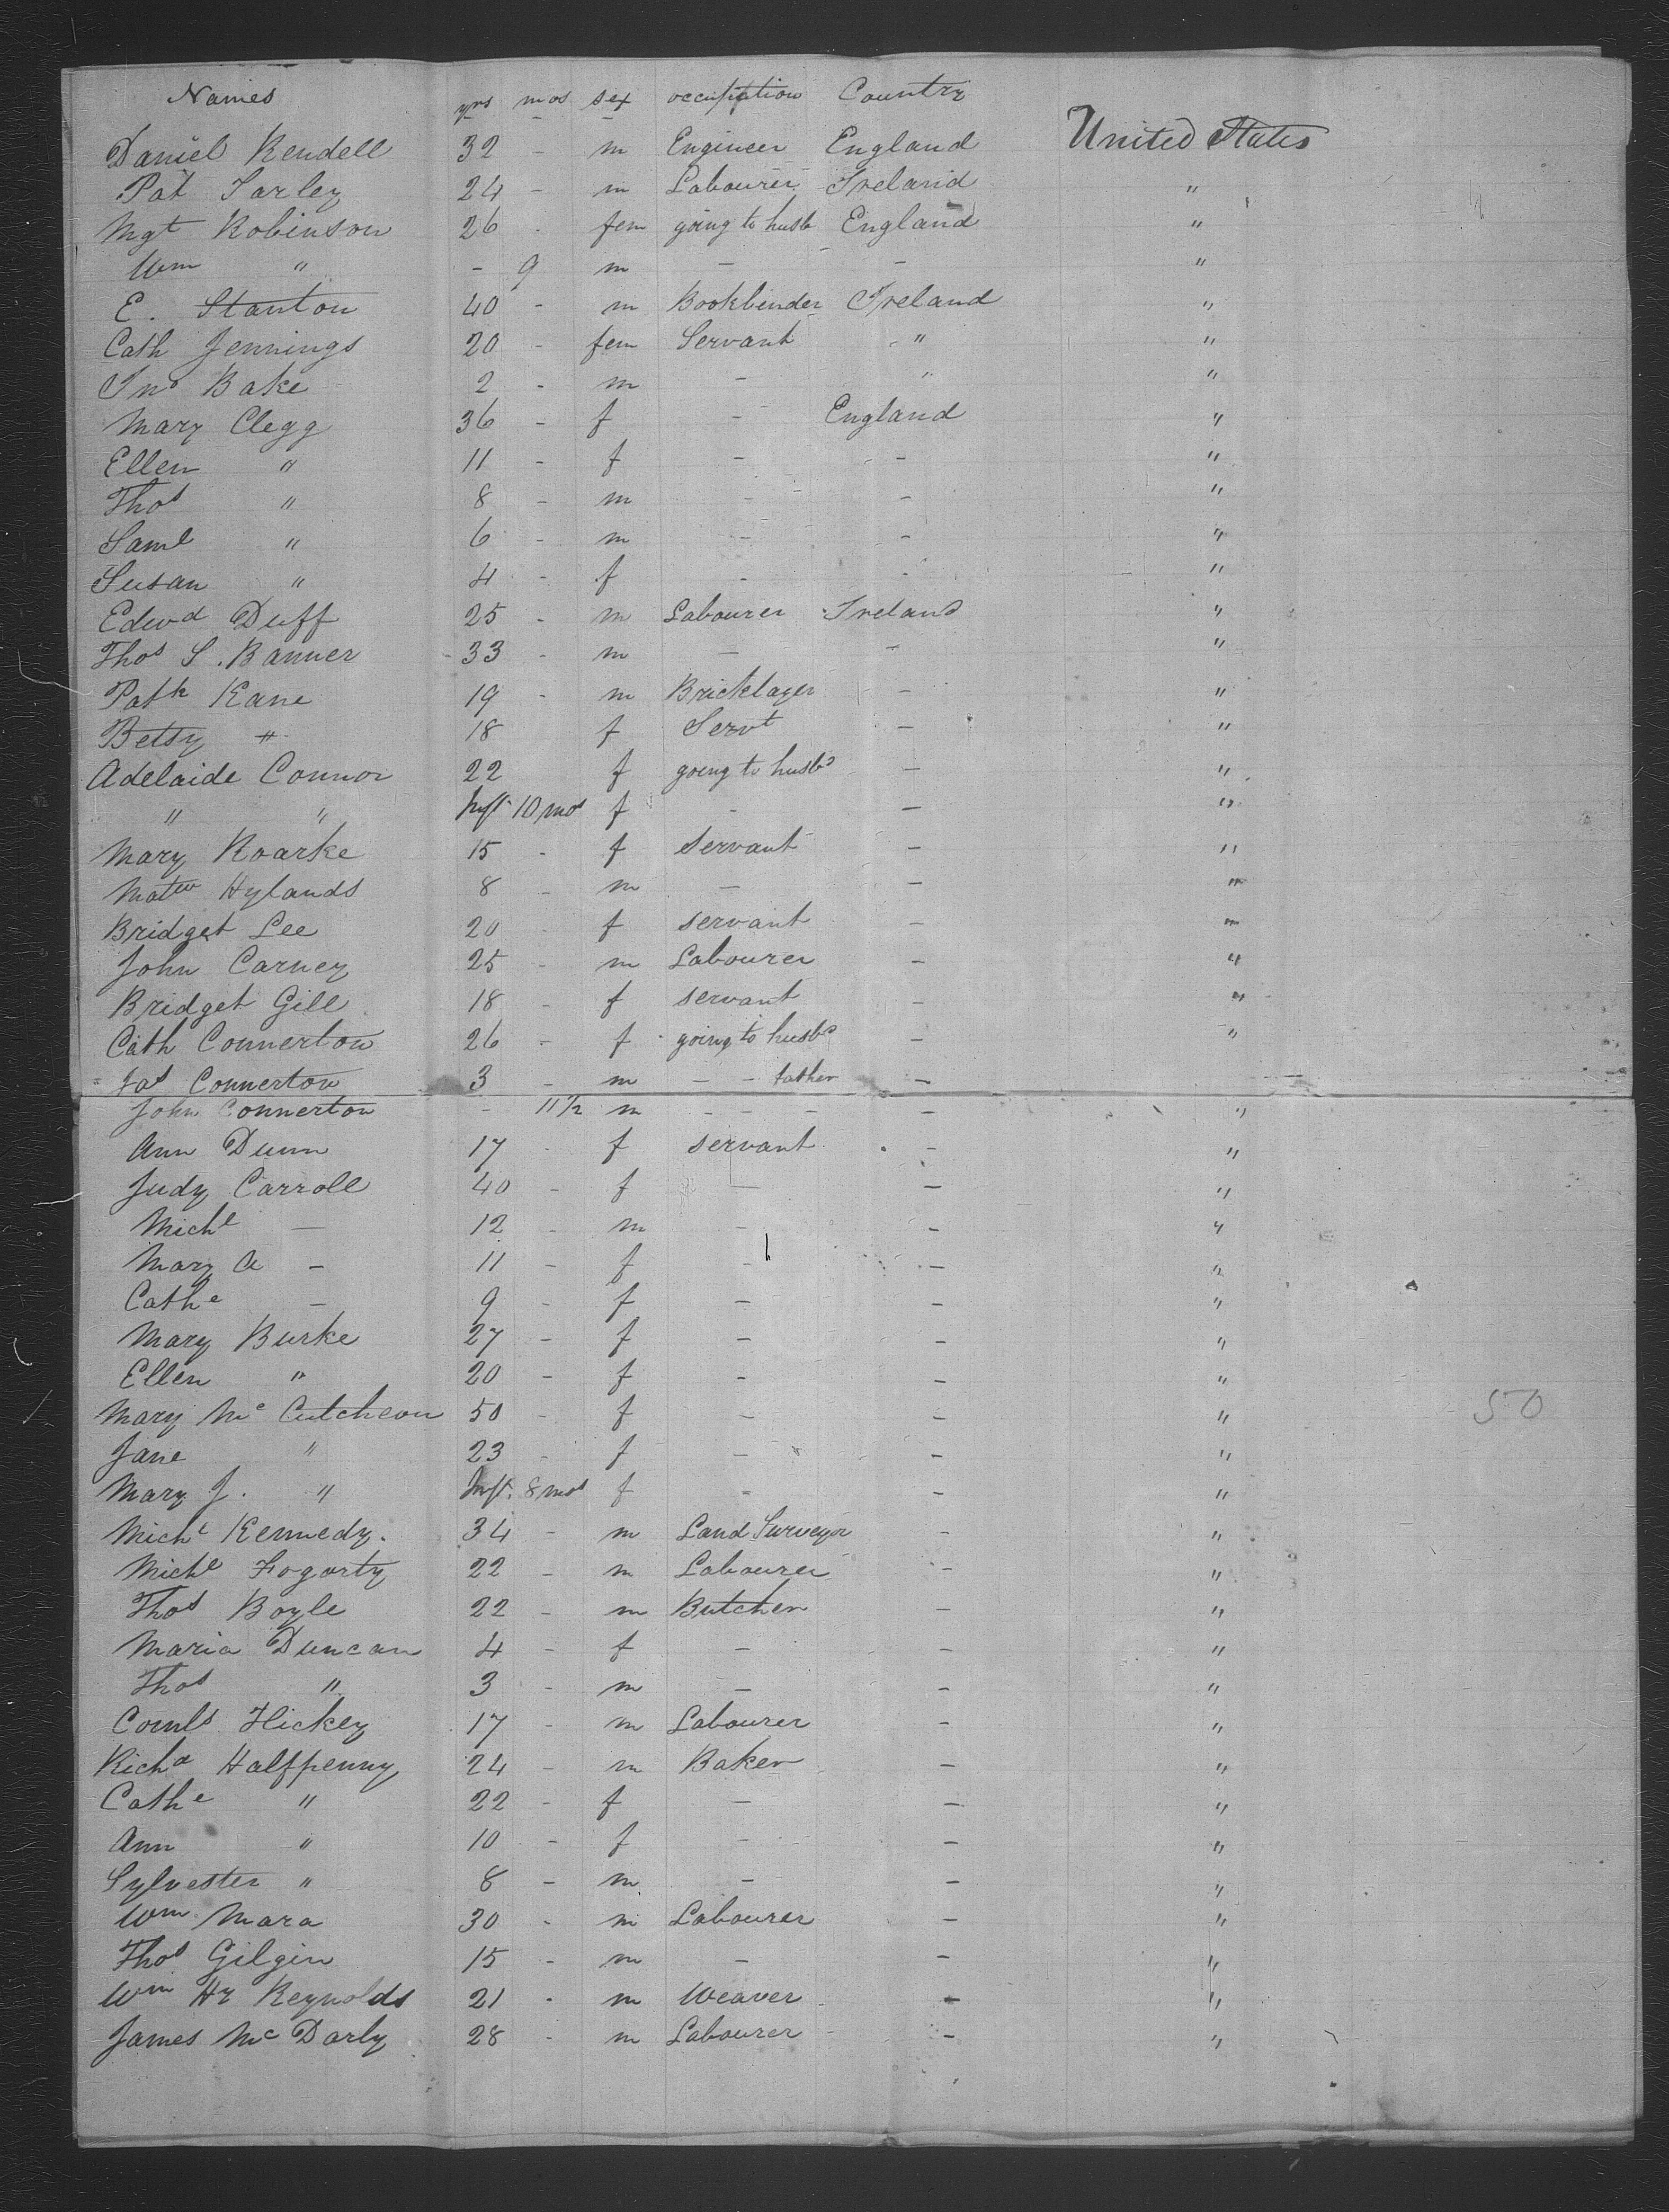 Names yrs mos sex occupation Country
Daniel Kendell 32 - m Engineer England United States
Pat Farley 24 - m Labourer Ireland "
Mgt Robinson 26 - fem going to husb England "
Wm " - 9 m - - "
E. Stanton 40 - m Bookbinder Ireland "
Cath Jennings 20 - fem Servant " "
Jno Bake 2 - m - " "
Mary Clegg 36 - f - England "
Ellen " 11 - f - - "
Thos " 8 - m - - "
Saml " 6 - m - - "
Susan " 4 - f - - "
Edwd Duff 25 - m Labourer Ireland "
Thos S. Banner 33 - m - - "
Patk Kane 19 - m Bricklayer - "
Betsy " 18 f Servt - "
Adelaide Connor 22 f going to husbd - "
" " Inft 10 mos f - - "
Mary Roarke 15 - f servant - "
Matw Hylands 8 - m - - "
Bridget Lee 20 - f servant - "
John Carney 25 - m Labourer - "
Bridget Gill 18 - f servant - "
Cath Connerton 26 - f going to husbd - "
Jas Connerton 3 - m - - father -
John Connerton - 11 1/2 m - - - - "
Ann Dunn 17 - f servant - "
Judy Carroll 40 - f - - "
Michl - 12 - m - - "
Mary A - 11 - f - - "
Cathe - 9 - f - - "
Mary Burke 27 - f - - "
Ellen " 20 - f - - "
Mary Mc Cutcheon 50 - f - - " 50
Jane " 23 - f - - "
Mary J. " Inft. 8 mos f - - "
Michl Kennedy. 34 - m Land Surveyor - "
Michl Fogarty 22 - m Labourer - "
Thos Boyle 22 - m Butcher - "
Maria Duncan 4 - f - - "
Thos " 3 - m - - "
Cornls Hickey 17 - m Labourer - "
Richd Halfpenny 24 - m Baker - "
Cathe " 22 - f - - "
Ann " 10 - f - - "
Sylvester " 8 - m - - "
Wm Mara 30 - m Labourer - "
Thos Gilgin 15 - m - - "
Wm Hy Reynolds 21 - m Weaver - "
James Mc Darby 28 - m Labourer - "